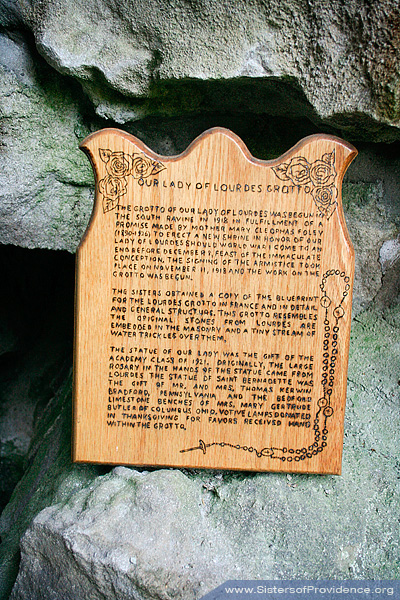 OUR LADY OF LOURDES GROTTO
THE GROTTO OF OUR LADY OF LOURDES WAS BEGUN IN
THE SOUTH RAVINE IN 1918 IN FULFILLMENT OF A
PROMISE MADE BY MOTHER MARY CLEOPHAS FOLEY
TO ERECT A NEW SHRINE IN HONOR OF OUR
LADY OF LOURDES SHOULD WORLD WAR I COME TO AN
END BEFORE DECEMBER 8, FEAST OF THE IMMACULATE
CONCEPTION. THE SIGNING OF THE ARMISTICE TOOK
PLACE ON NOVEMBER 11, 1918 AND THE WORK ON THE
GROTTO WAS BEGUN.
THE SISTERS OBTAINED A COPY OF THE BLUEPRINT
FOR THE LOURDES GROTTO IN FRANCE AND IN DETAIL
AND GENERAL STRUCTURE, THIS GROTTO RESEMBLES
THE ORIGINAL. STONES FROM LOURDES ARE
EMBEDDED IN THE MASONRY AND A TINY STREAM OF
WATER TRICKLES OVER THEM.
THE STATUE OF OUR LADY WAS THE GIFT OF THE
ACADEMY CLASS OF 1921. ORIGINALLY, THE LARGE
ROSARY IN THE HANDS OF THE STATUE CAME FROM
LOURDES. THE STATUE OF SAINT BERNADETTE WAS
THE GIFT OF MR. AND MRS. THOMAS KERWIN,
BRADFORD, PENNSYLVANIA AND THE BEDFORD
LIMESTONE BENCHES OF MRS. MARY GERTRUDE
BUTLER OF COLUMBUS, OHIO. VOTIVE LAMPS DONATED
IN THANKSGIVING FOR FAVORS RECEIVED HANG
WITHIN THE GROTTO.
www.SistersofProvidence.org